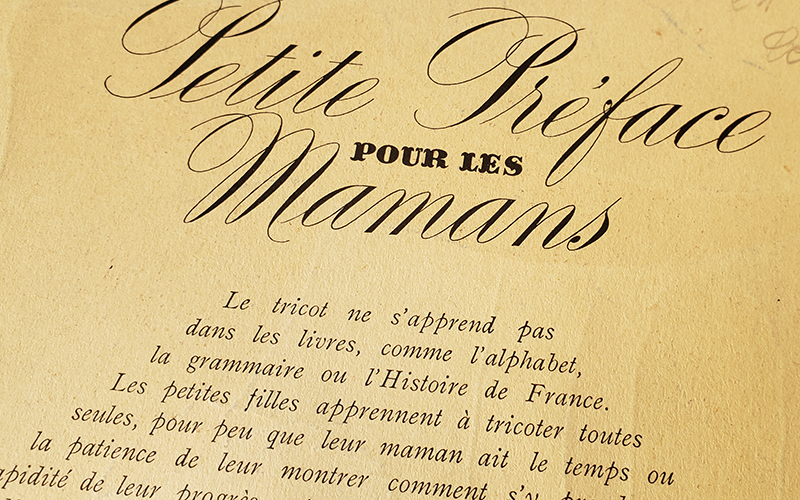 Petite Préface
POUR LES
Mamans
Le tricot ne s'apprend pas
dans les livres, comme l'alphabet,
la grammaire ou l'Histoire de France.
Les petites filles apprennent à tricoter toutes
seules, pour peu que leur maman ait le temps ou
la patience de leur montrer comment s'y
de leur